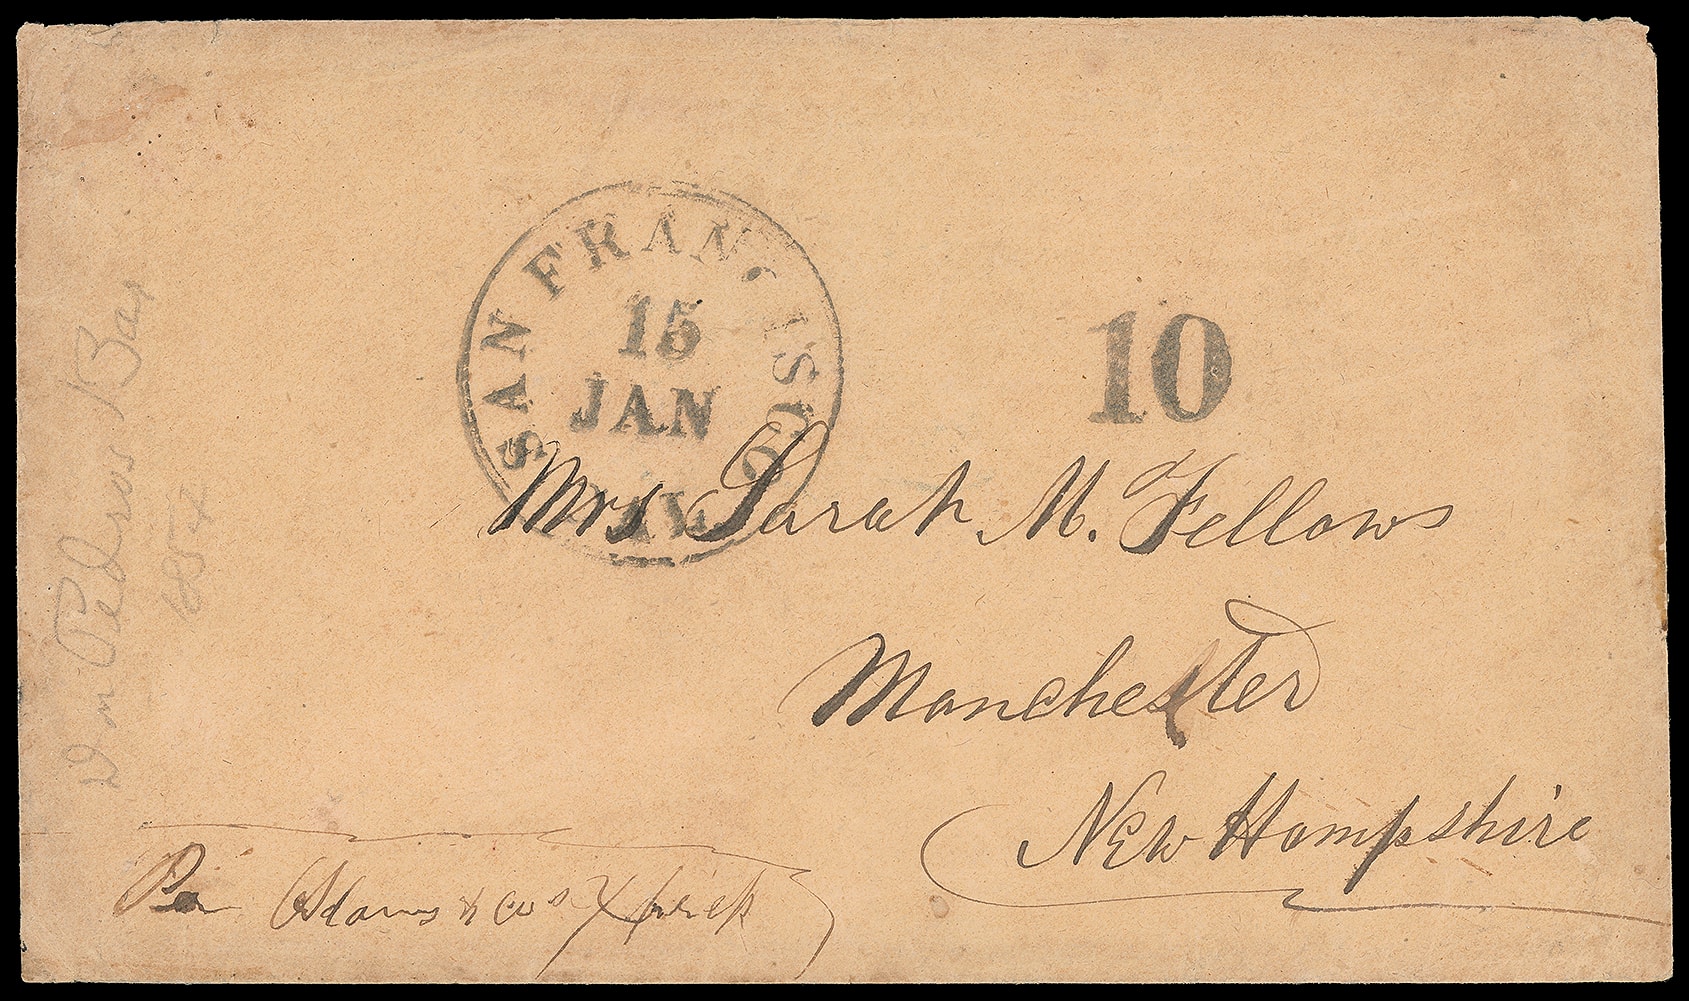 SAN FRANCISCO
15
JAN
CAL.
10
Mrs Sarah M. Fellows
Manchester
New Hampshire
Per Adams & Co's Xpress
Pedros Bar